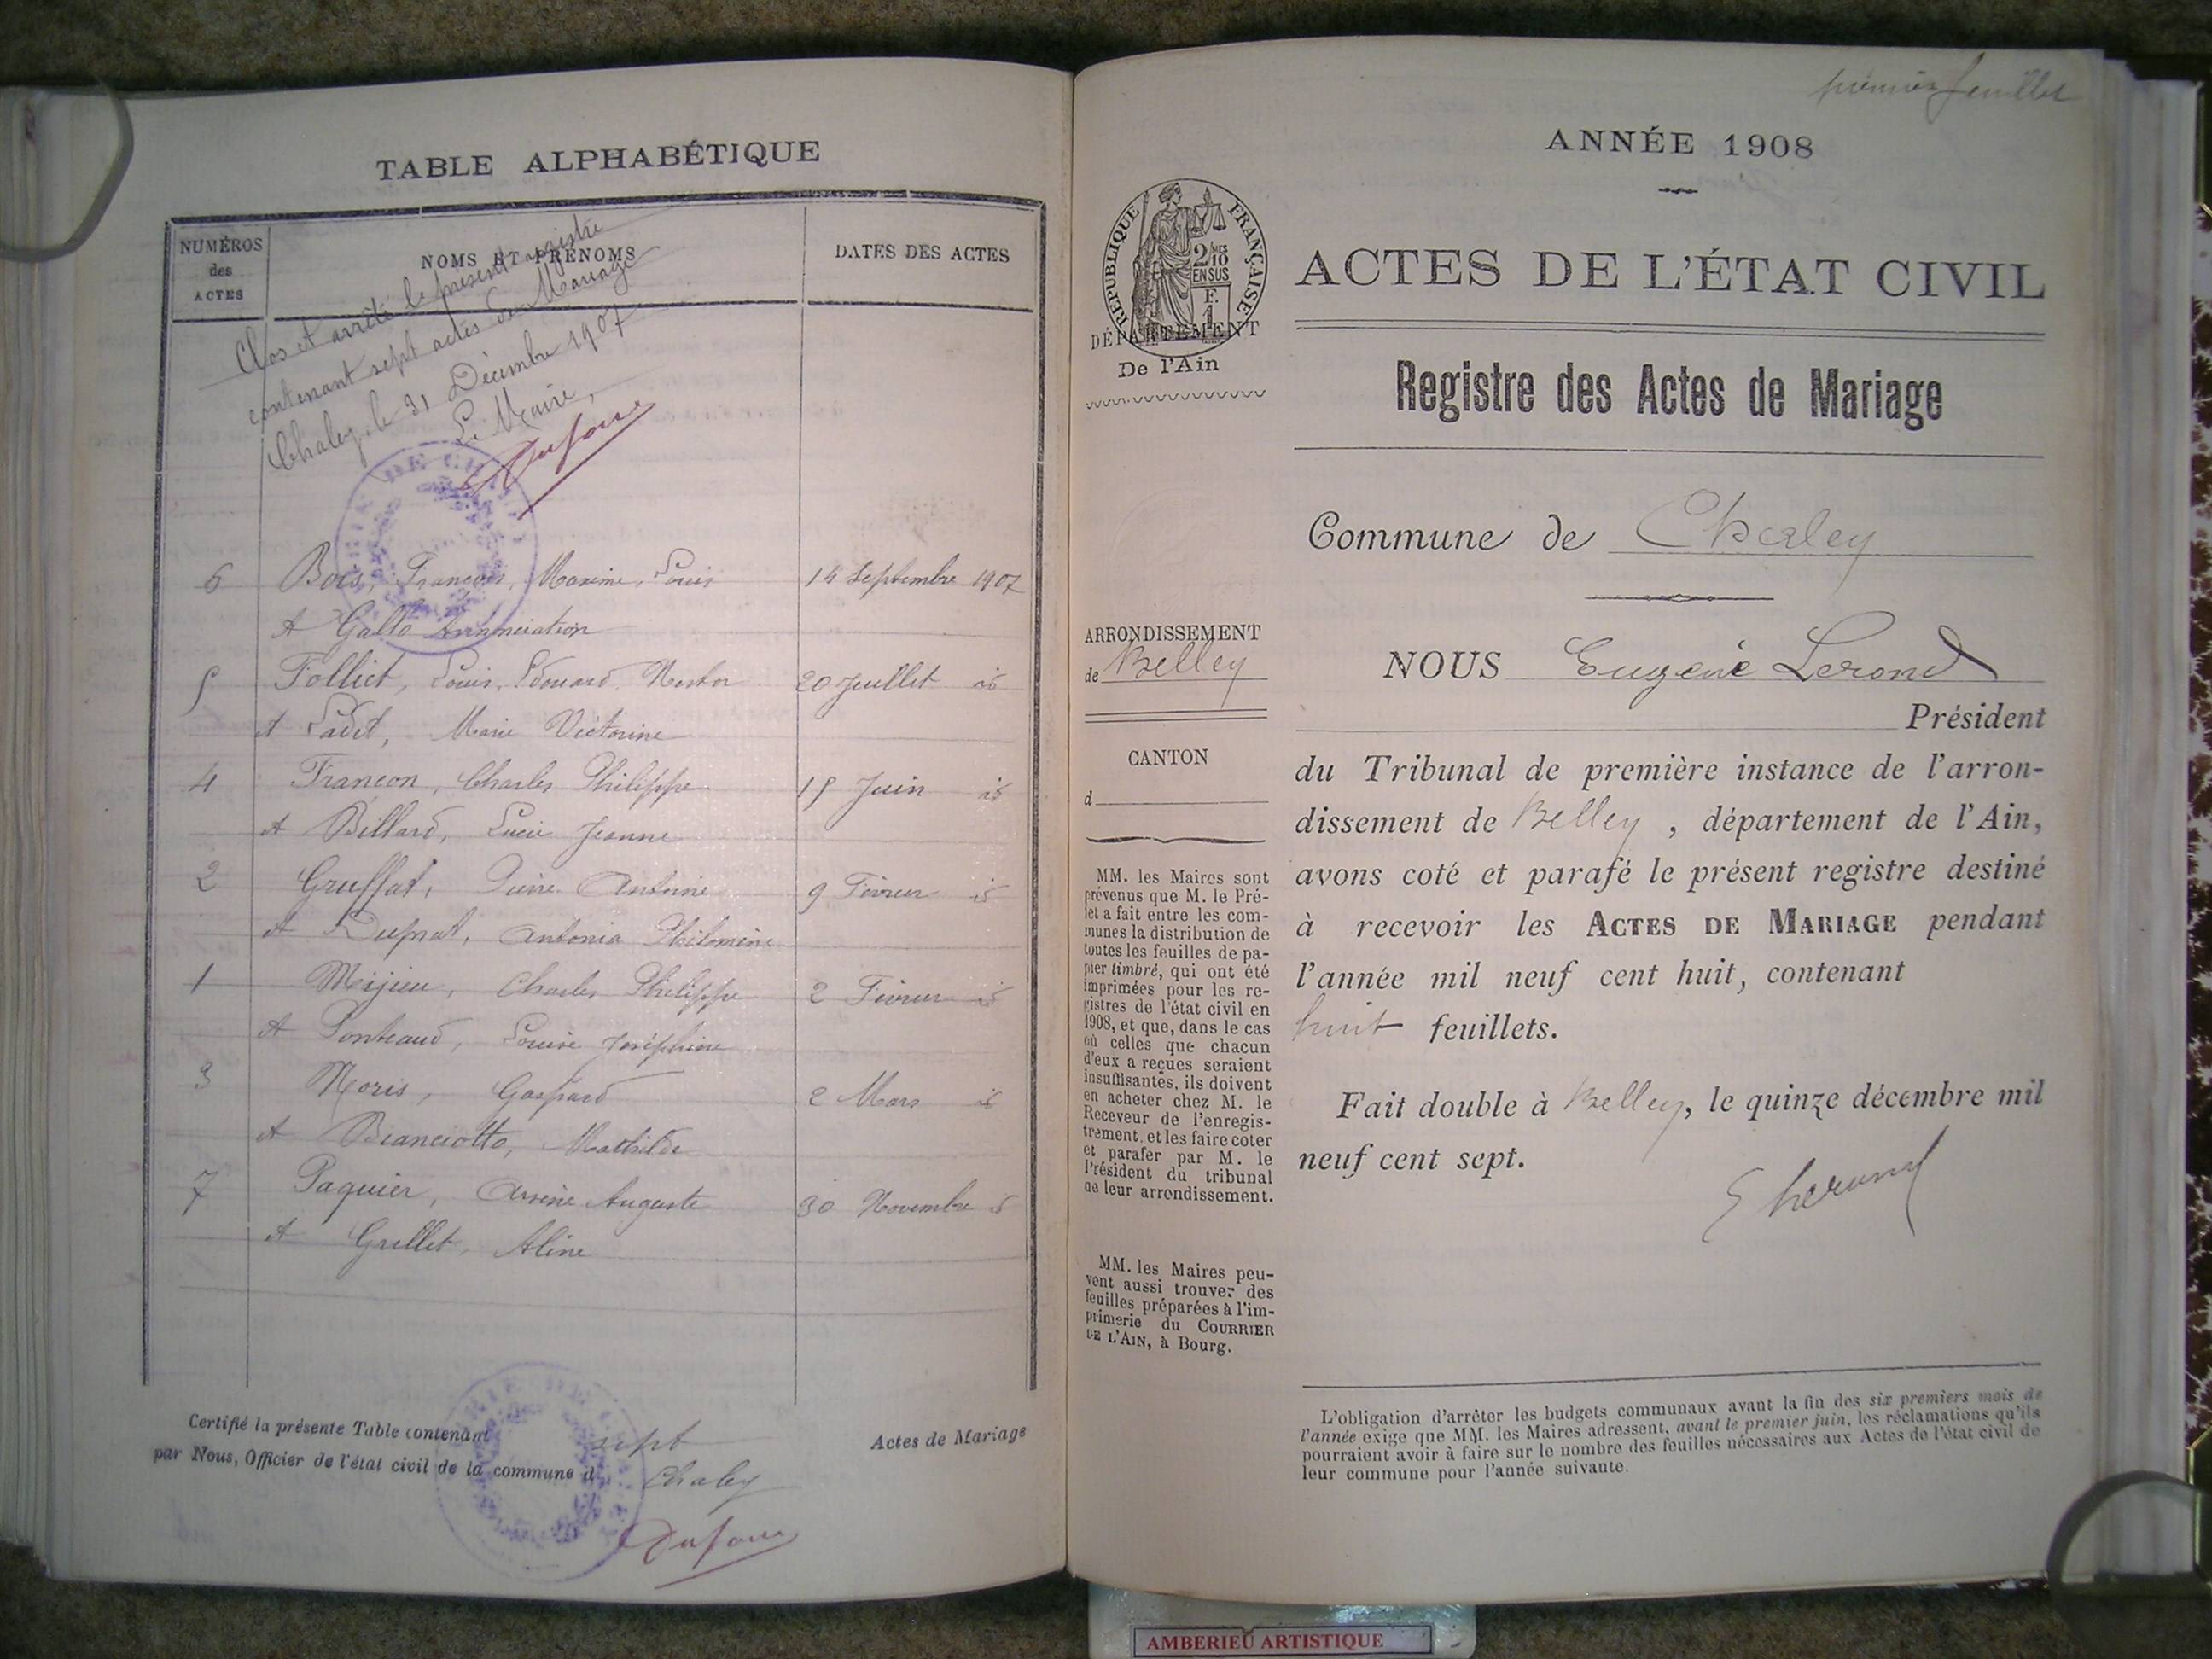 TABLE ALPHABÉTIQUE
NUMÉROS des ACTES
NOMS ET PRÉNOMS
DATES DES ACTES
Clos et arrêté le présent registre
contenant sept actes de Mariage
Chaley, le 31 Décembre 1907
Le Maire,
Dufour
6 Bois, François, Maxime, Louis 14 Septembre 1907
et Gallo Annonciation
5 Folliet, Louis, Edouard, Nestor 20 Juillet id
et Cadet, Marie Victorine
4 Françon, Charles Philippe 15 Juin id
et Billard, Lucie Jeanne
2 Gruffat, Pierre Antoine 9 Février id
et Duprat, Antonia Philomène
1 Mijieu, Charles Philippe 2 Février id
et Ponteaud, Louise Joséphine
3 Moris, Gaspard 2 Mars id
et Bianciotto, Mathilde
7 Paquier, Arsène Auguste 30 Novembre id
et Grillet, Aline
Certifié la présente Table contenant sept Actes de Mariage
par Nous, Officier de l'état civil de la commune d Chaley
Dufour
premier feuillet
ANNÉE 1908
RÉPUBLIQUE FRANÇAISE
2/10
EN SUS
F.
1
DÉPARTEMENT
De l'Ain
ACTES DE L'ÉTAT CIVIL
Registre des Actes de Mariage
Commune de Chaley
ARRONDISSEMENT
de Belley
CANTON
d
MM. les Maires sont
prévenus que M. le Pré-
fet a fait entre les com-
munes la distribution de
toutes les feuilles de pa-
pier timbré, qui ont été
imprimées pour les re-
gistres de l'état civil en
1908, et que, dans le cas
où celles que chacun
d'eux a reçues seraient
insuffisantes, ils doivent
en acheter chez M. le
Receveur de l'enregis-
trement, et les faire coter
et parafer par M. le
Président du tribunal
de leur arrondissement.
MM. les Maires peu-
vent aussi trouver des
feuilles préparées à l'im-
primerie du COURRIER
DE L'AIN, à Bourg.
NOUS Eugène Lerond
Président
du Tribunal de première instance de l'arron-
dissement de Belley, département de l'Ain,
avons coté et parafé le présent registre destiné
à recevoir les ACTES DE MARIAGE pendant
l'année mil neuf cent huit, contenant
huit feuillets.
Fait double à Belley, le quinze décembre mil
neuf cent sept.
E Lerond
L'obligation d'arrêter les budgets communaux avant la fin des six premiers mois de
l'année exige que MM. les Maires adressent, avant le premier juin, les réclamations qu'ils
pourraient avoir à faire sur le nombre des feuilles nécessaires aux Actes de l'état civil de
leur commune pour l'année suivante.
AMBERIEU ARTISTIQUE